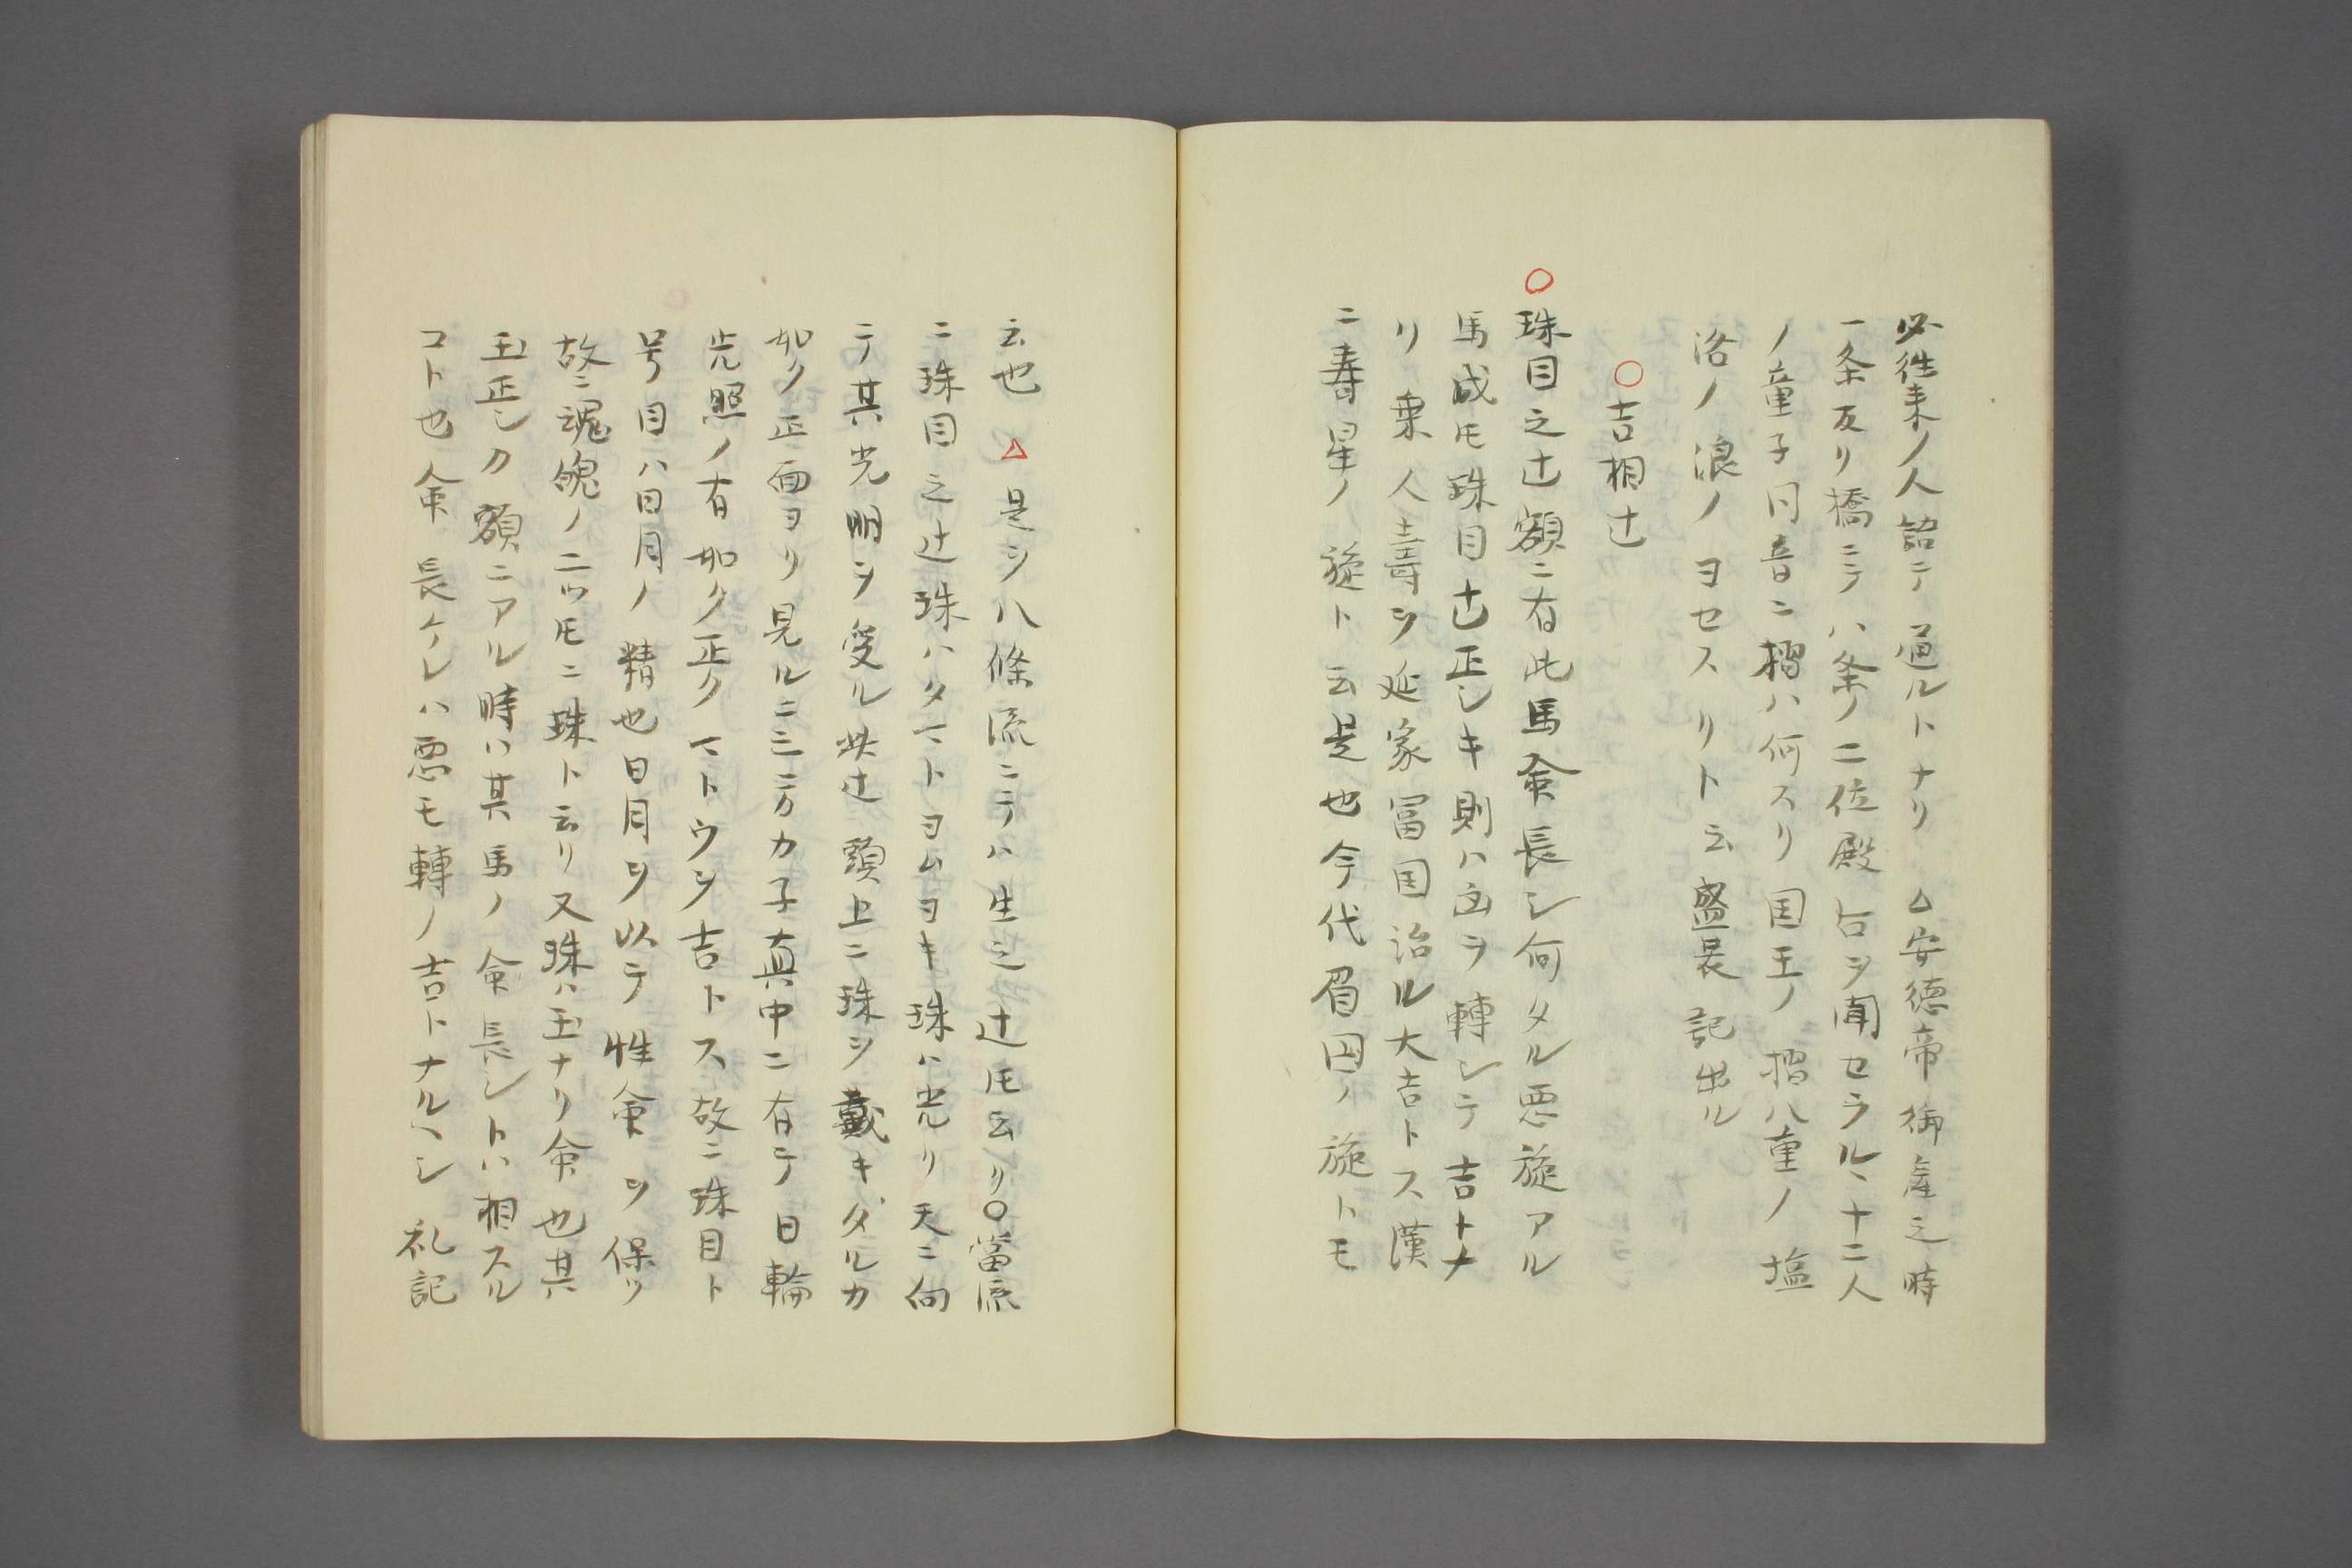 必徃来ノ人詔テ通ルトナリ △安徳帝御産之時
一条反リ橋ニテハ条ノ二位殿占ヲ聞セラル丶十二人
ノ童子同音ニ榻ハ何スリ国王ノ榻八重ノ塩
洛ノ浪ノヨセスリト云盛衰記出ル
○吉相辻
○珠目之辻額ニ有此馬命長シ何タル悪旋アル
馬成𪜈珠目辻正シキ則ハ凶ヲ轉シテ吉トナ
リ乗人壽ヲ延家冨国治ル大吉トス漢
ニ寿星ノ旋ト云是也今代眉間ノ旋トモ
云也 △是ヲ八條流ニテハ生之辻𪜈云リ○當流
ニ珠目之辻珠ハタマトヨムヨキ珠ハ光リ天ニ向
テ其光明ヲ受ル此辻頭上ニ珠ヲ戴キダルカ
如ク正面ヨリ見ルニ三方カ子真中ニ有テ日輪
光照ノ有如ク正クマトウヲ吉トス故ニ珠目ト
号目ハ日月ノ精也日月ヲ以テ性命ヲ保ツ
故ニ魂魄ノ二ツ𪜈ニ珠ト云リ又珠ハ玉ナリ命也其
玉正シク額ニアル時ハ其馬ノ命長シトハ相スル
コト也命長ケレハ悪モ轉ノ吉トナルヘシ 礼記